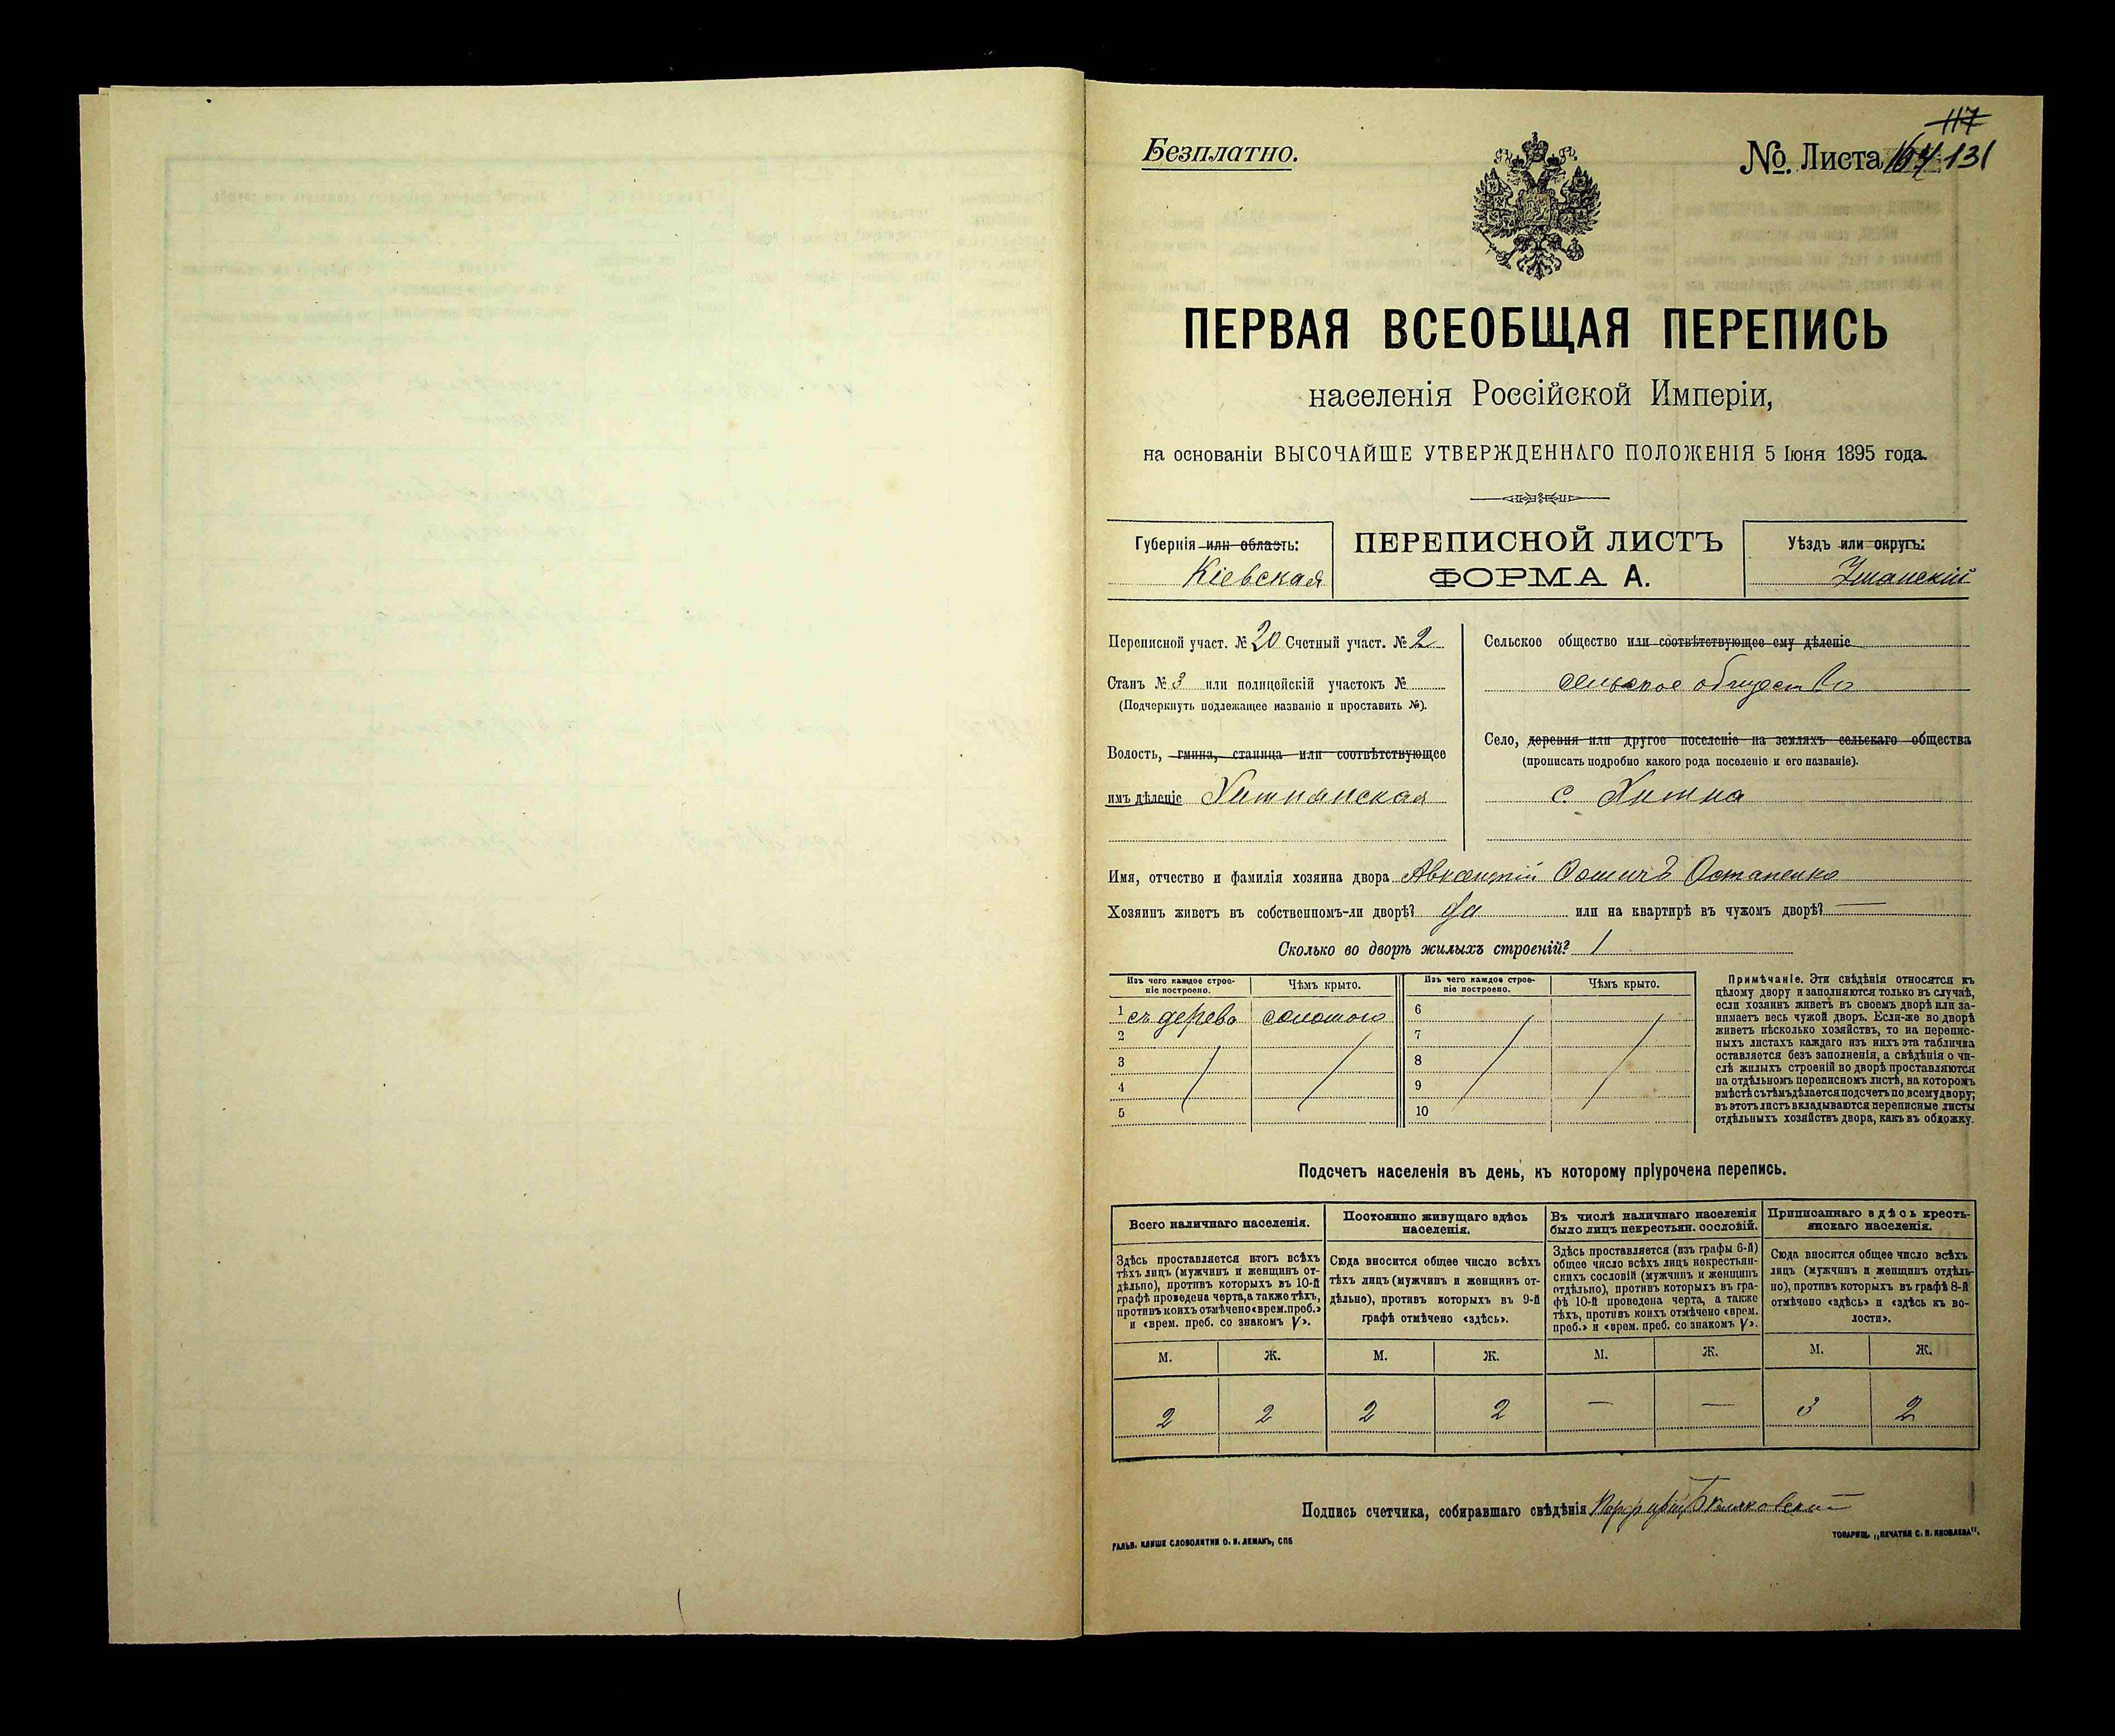 117
Безплатно.
№ Листа 164 131
ПЕРВАЯ ВСЕОБЩАЯ ПЕРЕПИСЬ
населенія Россійской Имперіи,
на основаніи ВЫСОЧАЙШЕ УТВЕРЖДЕННАГО ПОЛОЖЕНІЯ 5 Іюня 1895 года.
Губернія или область:
Кіевская
ПЕРЕПИСНОЙ ЛИСТЪ
ФОРМА А.
Уѣздъ или округъ:
Уманскій
Переписной участ. № 20 Счетный участ. № 2
Станъ № 3 или полицейскій участокъ №
(Подчеркнуть подлежащее названіе и проставить №).
Волость, гмина, станица или соотвѣтствующее
имъ дѣленіе Хитнянская
Сельское общество или соотвѣтствующее ему дѣленіе
сельское общество
Село, деревня или другое поселеніе на земляхъ сельскаго общества
(прописать подробно какого рода поселеніе и его названіе).
с. Хитна
Имя, отчество и фамилія хозяина двора Авксентій Фомичъ Остапенко
Хозяинъ живетъ въ собственномъ-ли дворѣ? Да или на квартирѣ въ чужомъ дворѣ? —
Сколько во дворѣ жилыхъ строеній? 1
Изъ чего каждое строеніе построено.
Чѣмъ крыто.
Изъ чего каждое строеніе построено.
Чѣмъ крыто.
1 съ дерева соломою
2
3
4
5
6
7
8
9
10
Примѣчаніе. Эти свѣдѣнія относятся къ
цѣлому двору и заполняются только въ случаѣ,
если хозяинъ живетъ въ своемъ дворѣ или за-
нимаетъ весь чужой дворъ. Если-же во дворѣ
живетъ нѣсколько хозяйствъ, то на перепис-
ныхъ листахъ каждаго изъ нихъ эта табличка
оставляется безъ заполненія, а свѣдѣнія о чи-
слѣ жилыхъ строеній во дворѣ проставляются
на отдѣльномъ переписномъ листѣ, на которомъ
вмѣстѣ съ тѣмъ дѣлается подсчетъ по всему двору;
въ этотъ листъ вкладываются переписные листы
отдѣльныхъ хозяйствъ двора, какъ въ обложку.
Подсчетъ населенія въ день, къ которому пріурочена перепись.
Всего наличнаго населенія.
Здѣсь проставляется итогъ всѣхъ
тѣхъ лицъ (мужчинъ и женщинъ от-
дѣльно), противъ которыхъ въ 10-й
графѣ проведена черта, а также тѣхъ,
противъ коихъ отмѣчено «врем. преб.»
и «врем. преб. со знакомъ V».
Постоянно живущаго здѣсь
населенія.
Сюда вносится общее число всѣхъ
тѣхъ лицъ (мужчинъ и женщинъ от-
дѣльно), противъ которыхъ въ 9-й
графѣ отмѣчено «здѣсь».
Въ числѣ наличнаго населенія
было лицъ некрестьян. сословій.
Здѣсь проставляется (изъ графы 6-й)
общее число всѣхъ лицъ некрестьян-
скихъ сословій (мужчинъ и женщинъ
отдѣльно), противъ которыхъ въ гра-
фѣ 10-й проведена черта, а также
тѣхъ, противъ коихъ отмѣчено «врем.
преб.» и «врем. преб. со знакомъ V».
Приписаннаго здѣсь кресть-
янскаго населенія.
Сюда вносится общее число всѣхъ
лицъ (мужчинъ и женщинъ отдѣль-
но), противъ которыхъ въ графѣ 8-й
отмѣчено «здѣсь» и «здѣсь къ во-
лости».
М. Ж. М. Ж. М. Ж. М. Ж.
2 2 2 2 — — 3 2
Подпись счетчика, собиравшаго свѣдѣнія
ГАЛЬВ. КЛИШЕ СЛОВОЛИТНИ О. И. ЛЕМАНЪ, СПБ
ТОВАРИЩ. „ПЕЧАТНЯ С. П. ЯКОВЛЕВА".